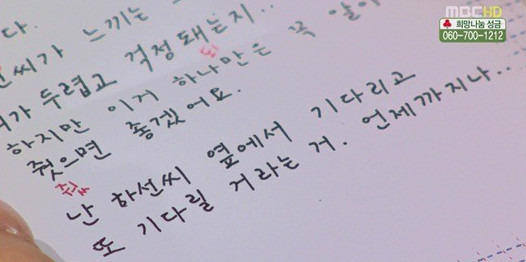 MBC HD
희망나눔 성금
060-700-1212
다.
씨가 느끼는
가 두렵고 걱정돼는지..
되
하지만 이거 하나만은 꼭 알아
줬으면 좋겠어요.
줘ㅆ
난 하선씨 옆에서 기다리고
또 기다릴 거라는 거. 언제까지나...